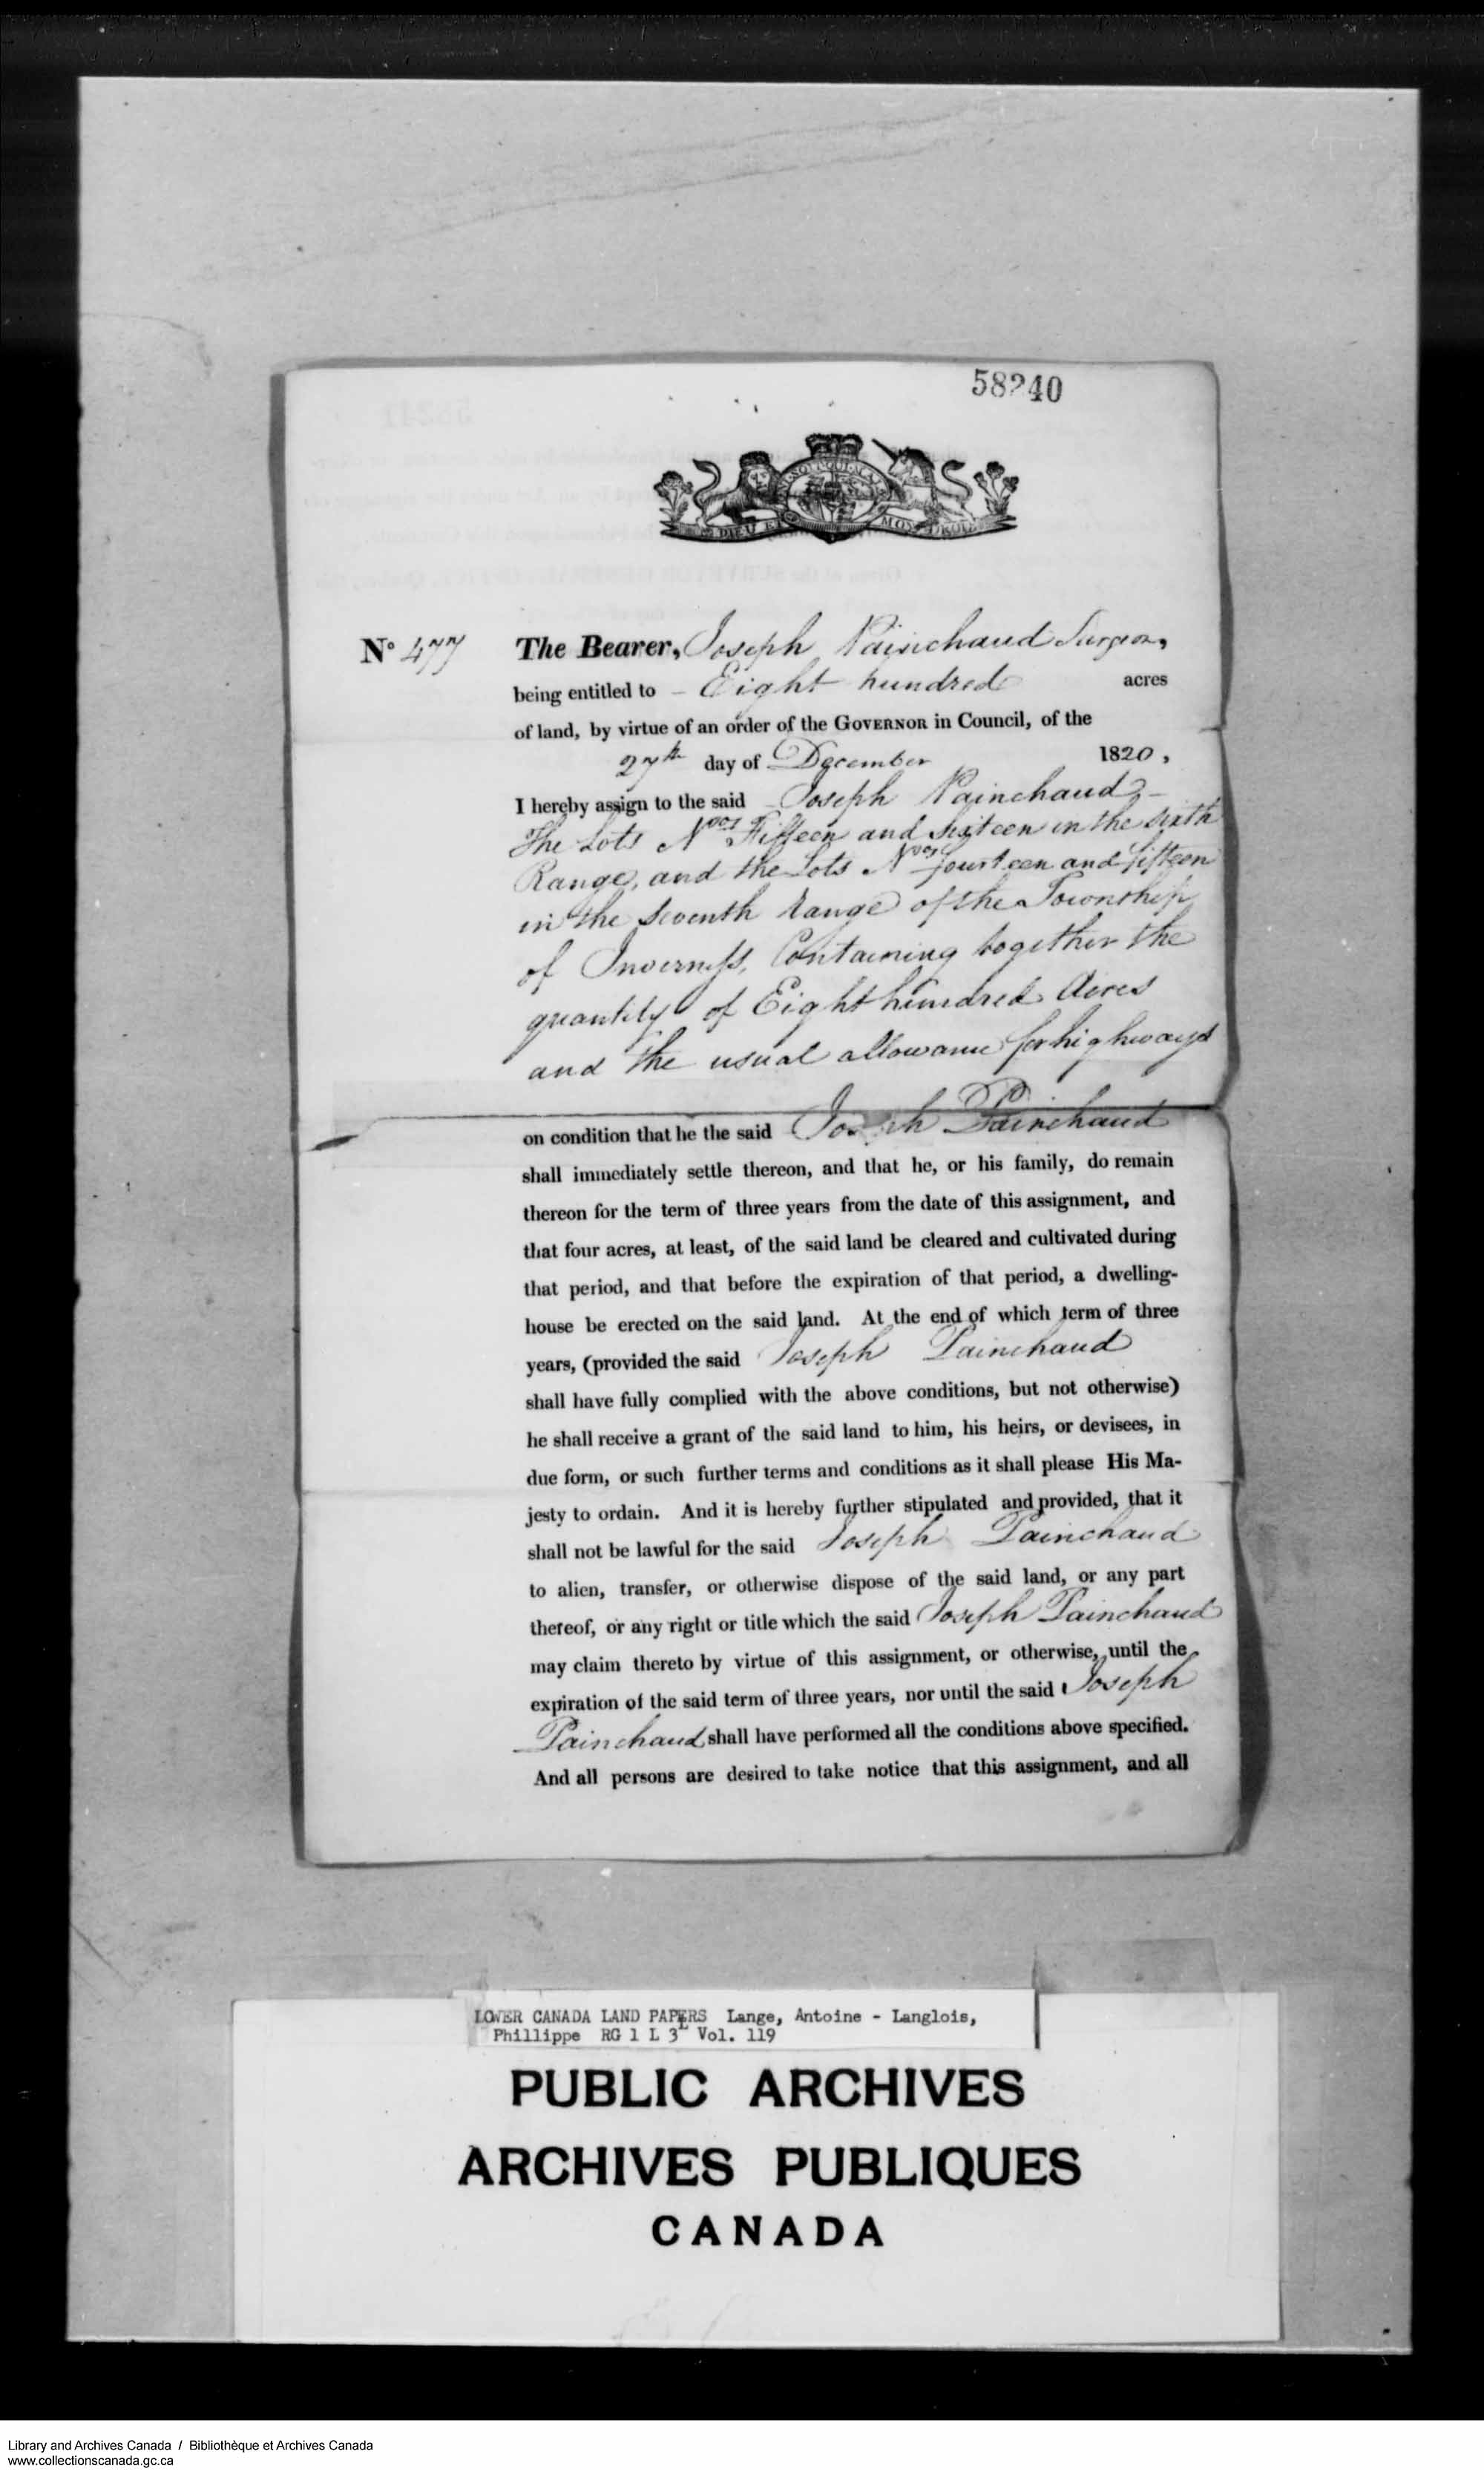 58240
DIEU ET MON DROIT
No 477 The Bearer, Joseph Painchaud Surgeon,
being entitled to - Eight hundred acres
of land, by virtue of an order of the GOVERNOR in Council, of the
27th day of December 1820,
I hereby assign to the said - Joseph Painchaud -
The Lots Nos Fifteen and Sixteen in the Sixth
Range, and the Lots Nos fourteen and fifteen
in the Seventh Range of the Township
of Inverness, Containing together the
quantity of Eight hundred Acres
and the usual allowance for highways
on condition that he the said Joseph Painchaud
shall immediately settle thereon, and that he, or his family, do remain
thereon for the term of three years from the date of this assignment, and
that four acres, at least, of the said land be cleared and cultivated during
that period, and that before the expiration of that period, a dwelling-
house be erected on the said land. At the end of which term of three
years, (provided the said Joseph Painchaud
shall have fully complied with the above conditions, but not otherwise)
he shall receive a grant of the said land to him, his heirs, or devisees, in
due form, or such further terms and conditions as it shall please His Ma-
jesty to ordain. And it is hereby further stipulated and provided, that it
shall not be lawful for the said Joseph Painchaud
to alien, transfer, or otherwise dispose of the said land, or any part
thereof, or any right or title which the said Joseph Painchaud
may claim thereto by virtue of this assignment, or otherwise, until the
expiration of the said term of three years, nor until the said Joseph
Painchaud shall have performed all the conditions above specified.
And all persons are desired to take notice that this assignment, and all
LOWER CANADA LAND PAPERS Lange, Antoine - Langlois,
Phillippe RG 1 L 3L Vol. 119
PUBLIC ARCHIVES
ARCHIVES PUBLIQUES
CANADA
Library and Archives Canada / Bibliothèque et Archives Canada
www.collectionscanada.gc.ca